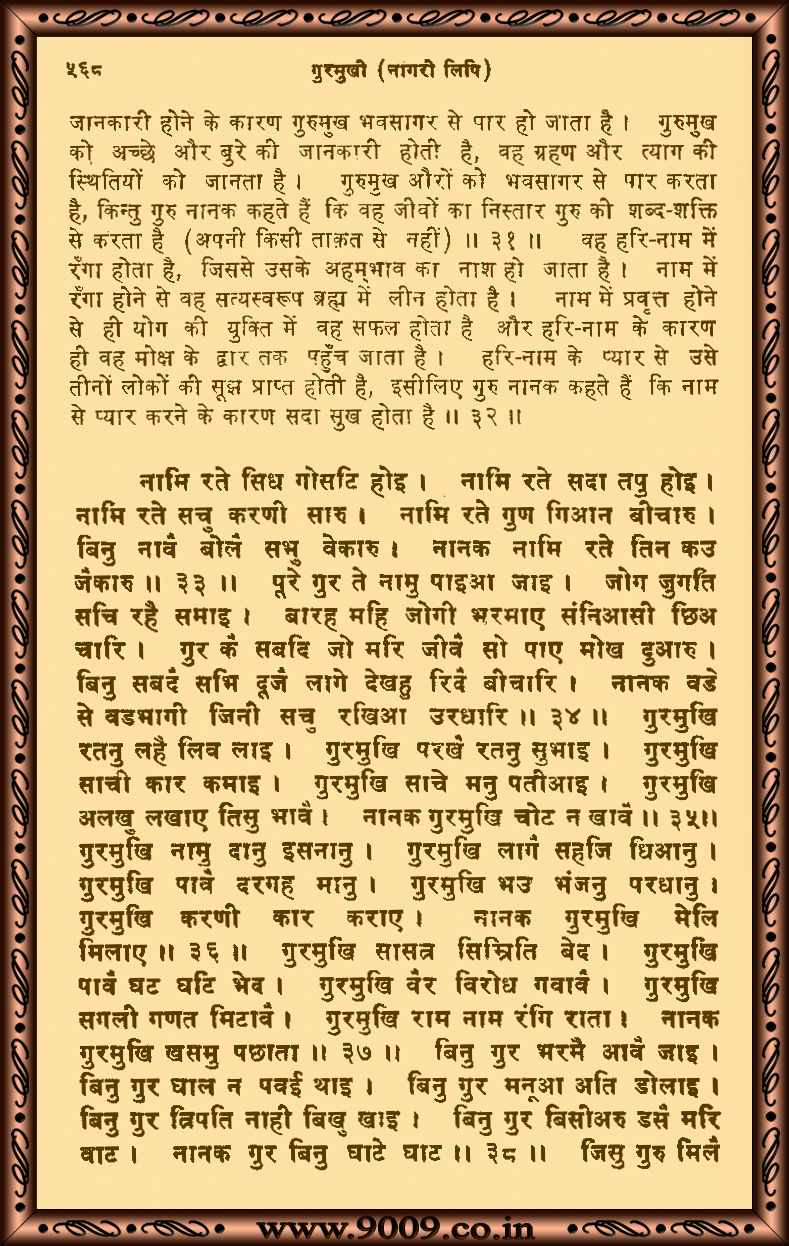 ५६८ गुरमुखी (नागरी लिपि)
जानकारी होने के कारण गुरुमुख भवसागर से पार हो जाता है । गुरुमुख
को अच्छे और बुरे की जानकारी होती है, वह ग्रहण और त्याग की
स्थितियों को जानता है । गुरुमुख औरों को भवसागर से पार करता
है, किन्तु गुरु नानक कहते हैं कि वह जीवों का निस्तार गुरु की शब्द-शक्ति
से करता है (अपनी किसी ताक़त से नहीं) ॥ ३१ ॥ वह हरि-नाम में
रँगा होता है, जिससे उसके अहम्‌भाव का नाश हो जाता है । नाम में
रँगा होने से वह सत्यस्वरूप ब्रह्म में लीन होता है । नाम में प्रवृत्त होने
से ही योग की युक्ति में वह सफल होता है और हरि-नाम के कारण
ही वह मोक्ष के द्वार तक पहुँच जाता है । हरि-नाम के प्यार से उसे
तीनों लोकों की सूझ प्राप्त होती है, इसीलिए गुरु नानक कहते हैं कि नाम
से प्यार करने के कारण सदा सुख होता है ॥ ३२ ॥
नामि रते सिध गोसटि होइ । नामि रते सदा तपु होइ ।
नामि रते सचु करणी सारु । नामि रते गुण गिआन बीचारु ।
बिनु नावै बोलै सभु वेकारु । नानक नामि रते तिन कउ
जैकारु ॥ ३३ ॥ पूरे गुर ते नामु पाइआ जाइ । जोग जुगति
सचि रहै समाइ । बारह महि जोगी भरमाए संनिआसी छिअ
चारि । गुर कै सबदि जो मरि जीवै सो पाए मोख दुआरु ।
बिनु सबदै सभि दूजै लागे देखहु रिदै बीचारि । नानक वडे
से वडभागी जिनी सचु रखिआ उरधारि ॥ ३४ ॥ गुरमुखि
रतनु लहै लिव लाइ । गुरमुखि परखै रतनु सुभाइ । गुरमुखि
साची कार कमाइ । गुरमुखि साचे मनु पतीआइ । गुरमुखि
अलखु लखाए तिसु भावै । नानक गुरमुखि चोट न खावै ॥ ३५॥
गुरमुखि नामु दानु इसनानु । गुरमुखि लागै सहजि धिआनु ।
गुरमुखि पावै दरगह मानु । गुरमुखि भउ भंजनु परधानु ।
गुरमुखि करणी कार कराए । नानक गुरमुखि मेलि
मिलाए ॥ ३६ ॥ गुरमुखि सासत्र सिम्रिति बेद । गुरमुखि
पावै घट घटि भेद । गुरमुखि वैर विरोध गवावै । गुरमुखि
सगली गणत मिटावै । गुरमुखि राम नाम रंगि राता । नानक
गुरमुखि खसमु पछाता ॥ ३७ ॥ बिनु गुर भरमै आवै जाइ ।
बिनु गुर घाल न पवई थाइ । बिनु गुर मनूआ अति डोलाइ ।
बिनु गुर त्रिपति नाही बिखु खाइ । बिनु गुर बिसीअरु डसै मरि
वाट । नानक गुर बिनु घाटे घाट ॥ ३८ ॥ जिसु गुरु मिलै
www.9009.co.in